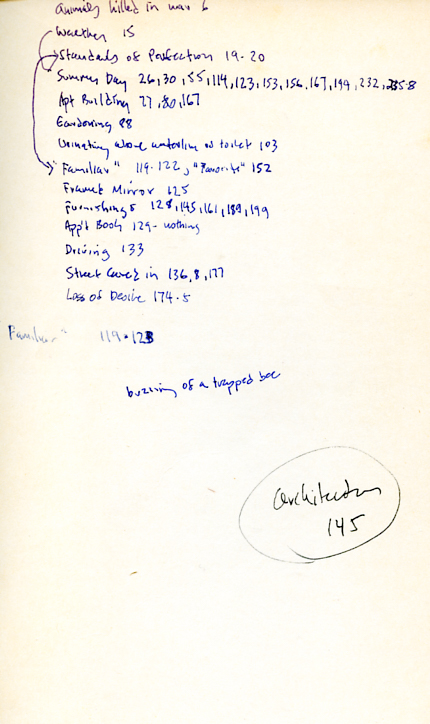 animals killed in war 6
Weather 15
Standards of Perfection 19-20
Summer Day 26,30,55,114,123,153,156,167,199,232,235-8
Apt Building 27,80,167
Gardening 88
Urinating above waterline on toilet 103
"Familiar" 119-122, "Favorite" 152
Framed Mirror 125
Furnishings 128,145,161,189,199
App't Book 129- nothing
Driving 133
Street Caved in 136,8,177
Loss of Desire 174-5
Familiar" 119-123
buzzing of a trapped bee
architecture
145